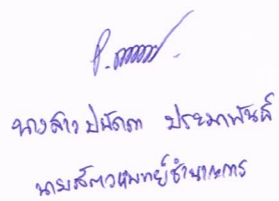 นางสาว ปนัดดา ประมาพันธ์
นายสัตวแพทย์ชำนาญการ